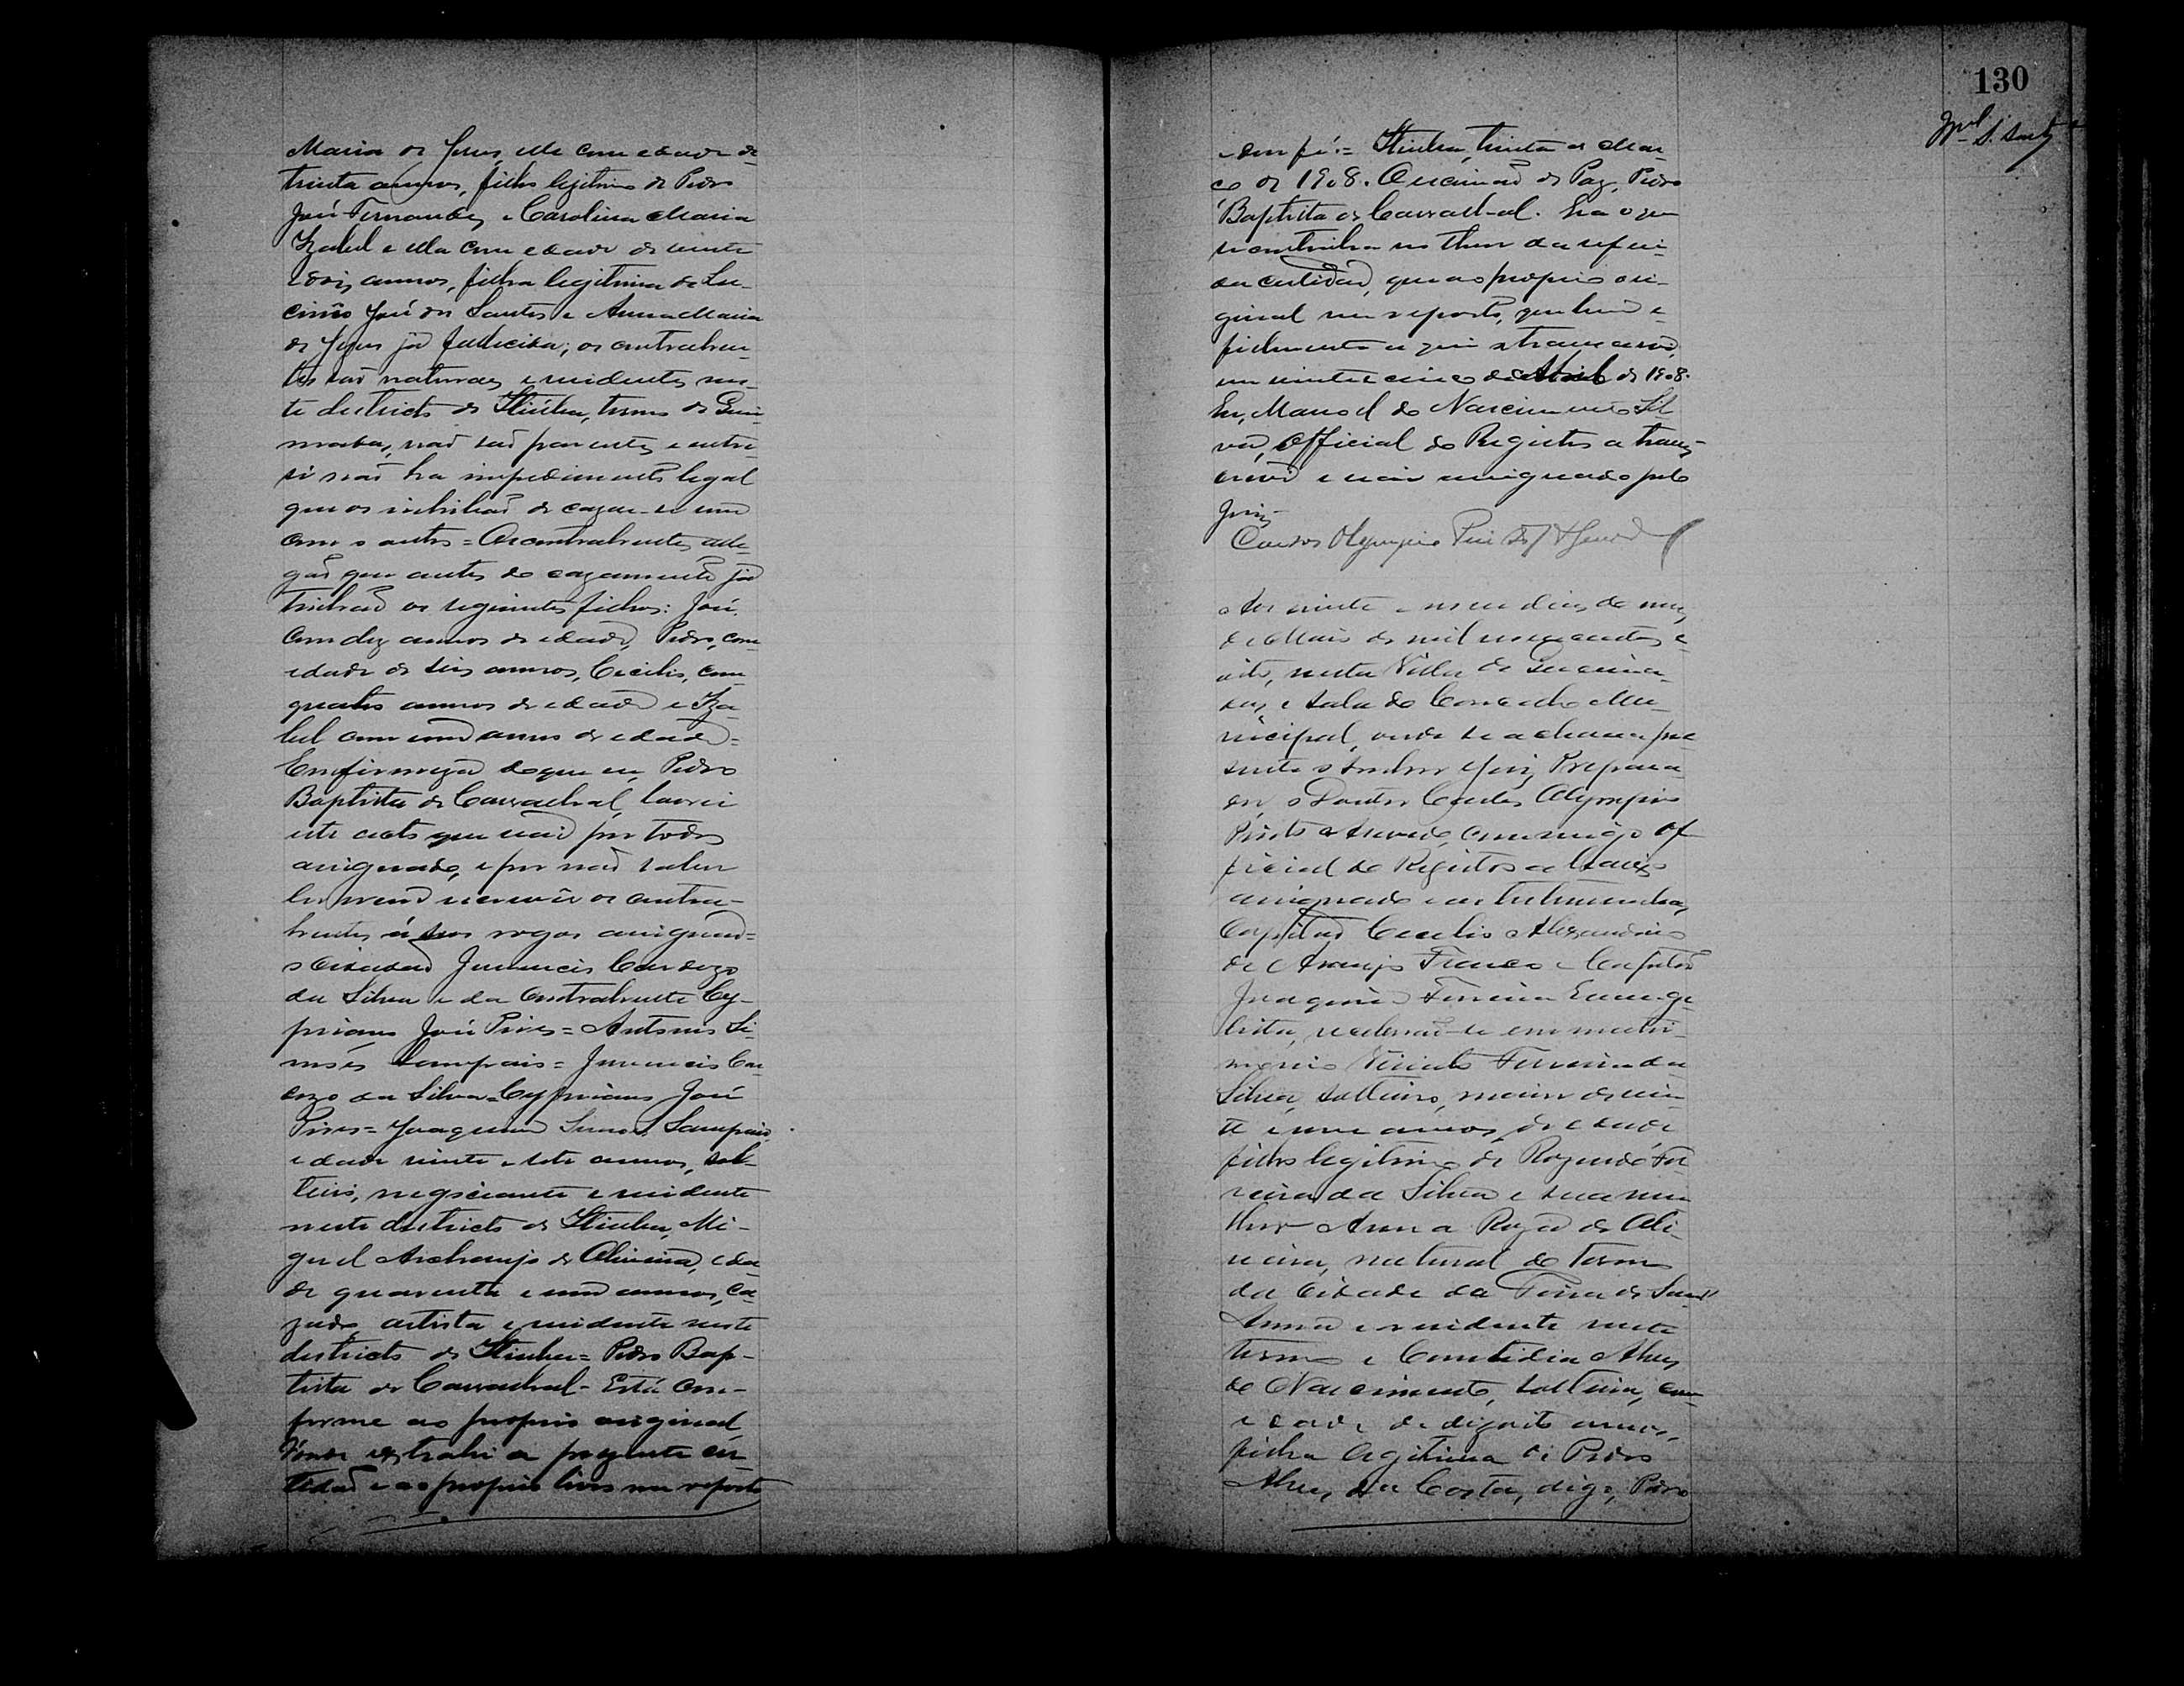 Maria de Jesus, elle com edade de
trinta annos, filho legitimo de Pedro
José Fernandes e Carolina Maria
Izabel e ella com edade de vinte
e dois annos, filha legitima de Lu-
cinio José dos Santos e Anna Maria
de Jesus já fallecida; os contrahen-
tes são naturaes e residentes nes-
te districto de Itiuba, termo de Quei-
madas, não são parentes e entre
si não ha impedimento legal
que os inhibão de cazar-se um
com o outro = Os contrahentes alle-
gão que antes do cazamento já
tinhão os seguintes filhos: José,
com dez annos de edade, Pedro, com
edade de seis annos, Cecilio, com
quatro annos de edade e Iza-
bel com um anno de edade =
Em firmeza do que eu, Pedro
Baptista de Carvalhal, lavrei
este acto que vai por todos
assignado, e por não saber
ler nem escrever os contra-
hentes á seos rogos assignão =
o cidadão Juvencio Cardozo
da Silva e da contrahente Cy-
priano José Pires = Antonio Si-
mões Sampaio = Juvencio Car-
dozo da Silva = Cypriano José
Pires = Joaquim Simões Sampaio,
edade vinte e sete annos, sol-
teiro, negociante e residente
neste districto de Itiuba, Mi-
guel Archanjo de Oliveira, eda-
de quarenta e um annos, ca-
zado, artista e residente neste
districto de Itiuba = Pedro Bap-
tista de Carvalhal - Está con-
forme ao proprio original,
d'onde extrahi a prezente cer-
tidão e ao proprio livro me reporto
130
e dou fé. = Itiuba, trinta de Mar-
ço de 1908. O escrivão de Paz, Pedro
Baptista de Carvalhal. Era o que
se continha no theor da referi-
da certidão, que ao proprio ori-
ginal me reporto, que bem e
fielmente aqui a transcrevi,
em vinte e cinco de Abril de 1908.
Eu, Manoel do Nascimento Sil-
va, Official do Registro a trans-
crevi e vai assignado pelo
Juiz
Carlos Olympio Pinto d'Azevedo
Aos vinte e nove dias do mez
de Maio de mil novecentos e
oito, nesta Villa de Queima-
das, e sala do Concelho Mu-
nicipal, onde se achava pre-
sente o Senhor Juiz Prepara-
dor, o Doutor Carlos Olympio
Pinto de Azevedo, commigo of-
ficial do Registro abaixo
assignado e as testemunhas,
Capitão Cecilio Alexandrino
de Araujo Franco e Capitão
Joaquim Ferreira Evange-
lista, receberão-se em matri-
monio Vicente Ferreira da
Silva, solteiro, maior de vin-
te e um annos de edade
filho legitimo de Rozendo Fer-
reira da Silva e sua mu-
lher Anna Roza de Oli-
veira, natural do termo
da cidade da Feira de Sant'
Anna e residente neste
termo e Alves
do Nascimento, solteira, com
edade de dizoito annos,
filha legitima de Pedro
Alves da Costa, digo, Pedro